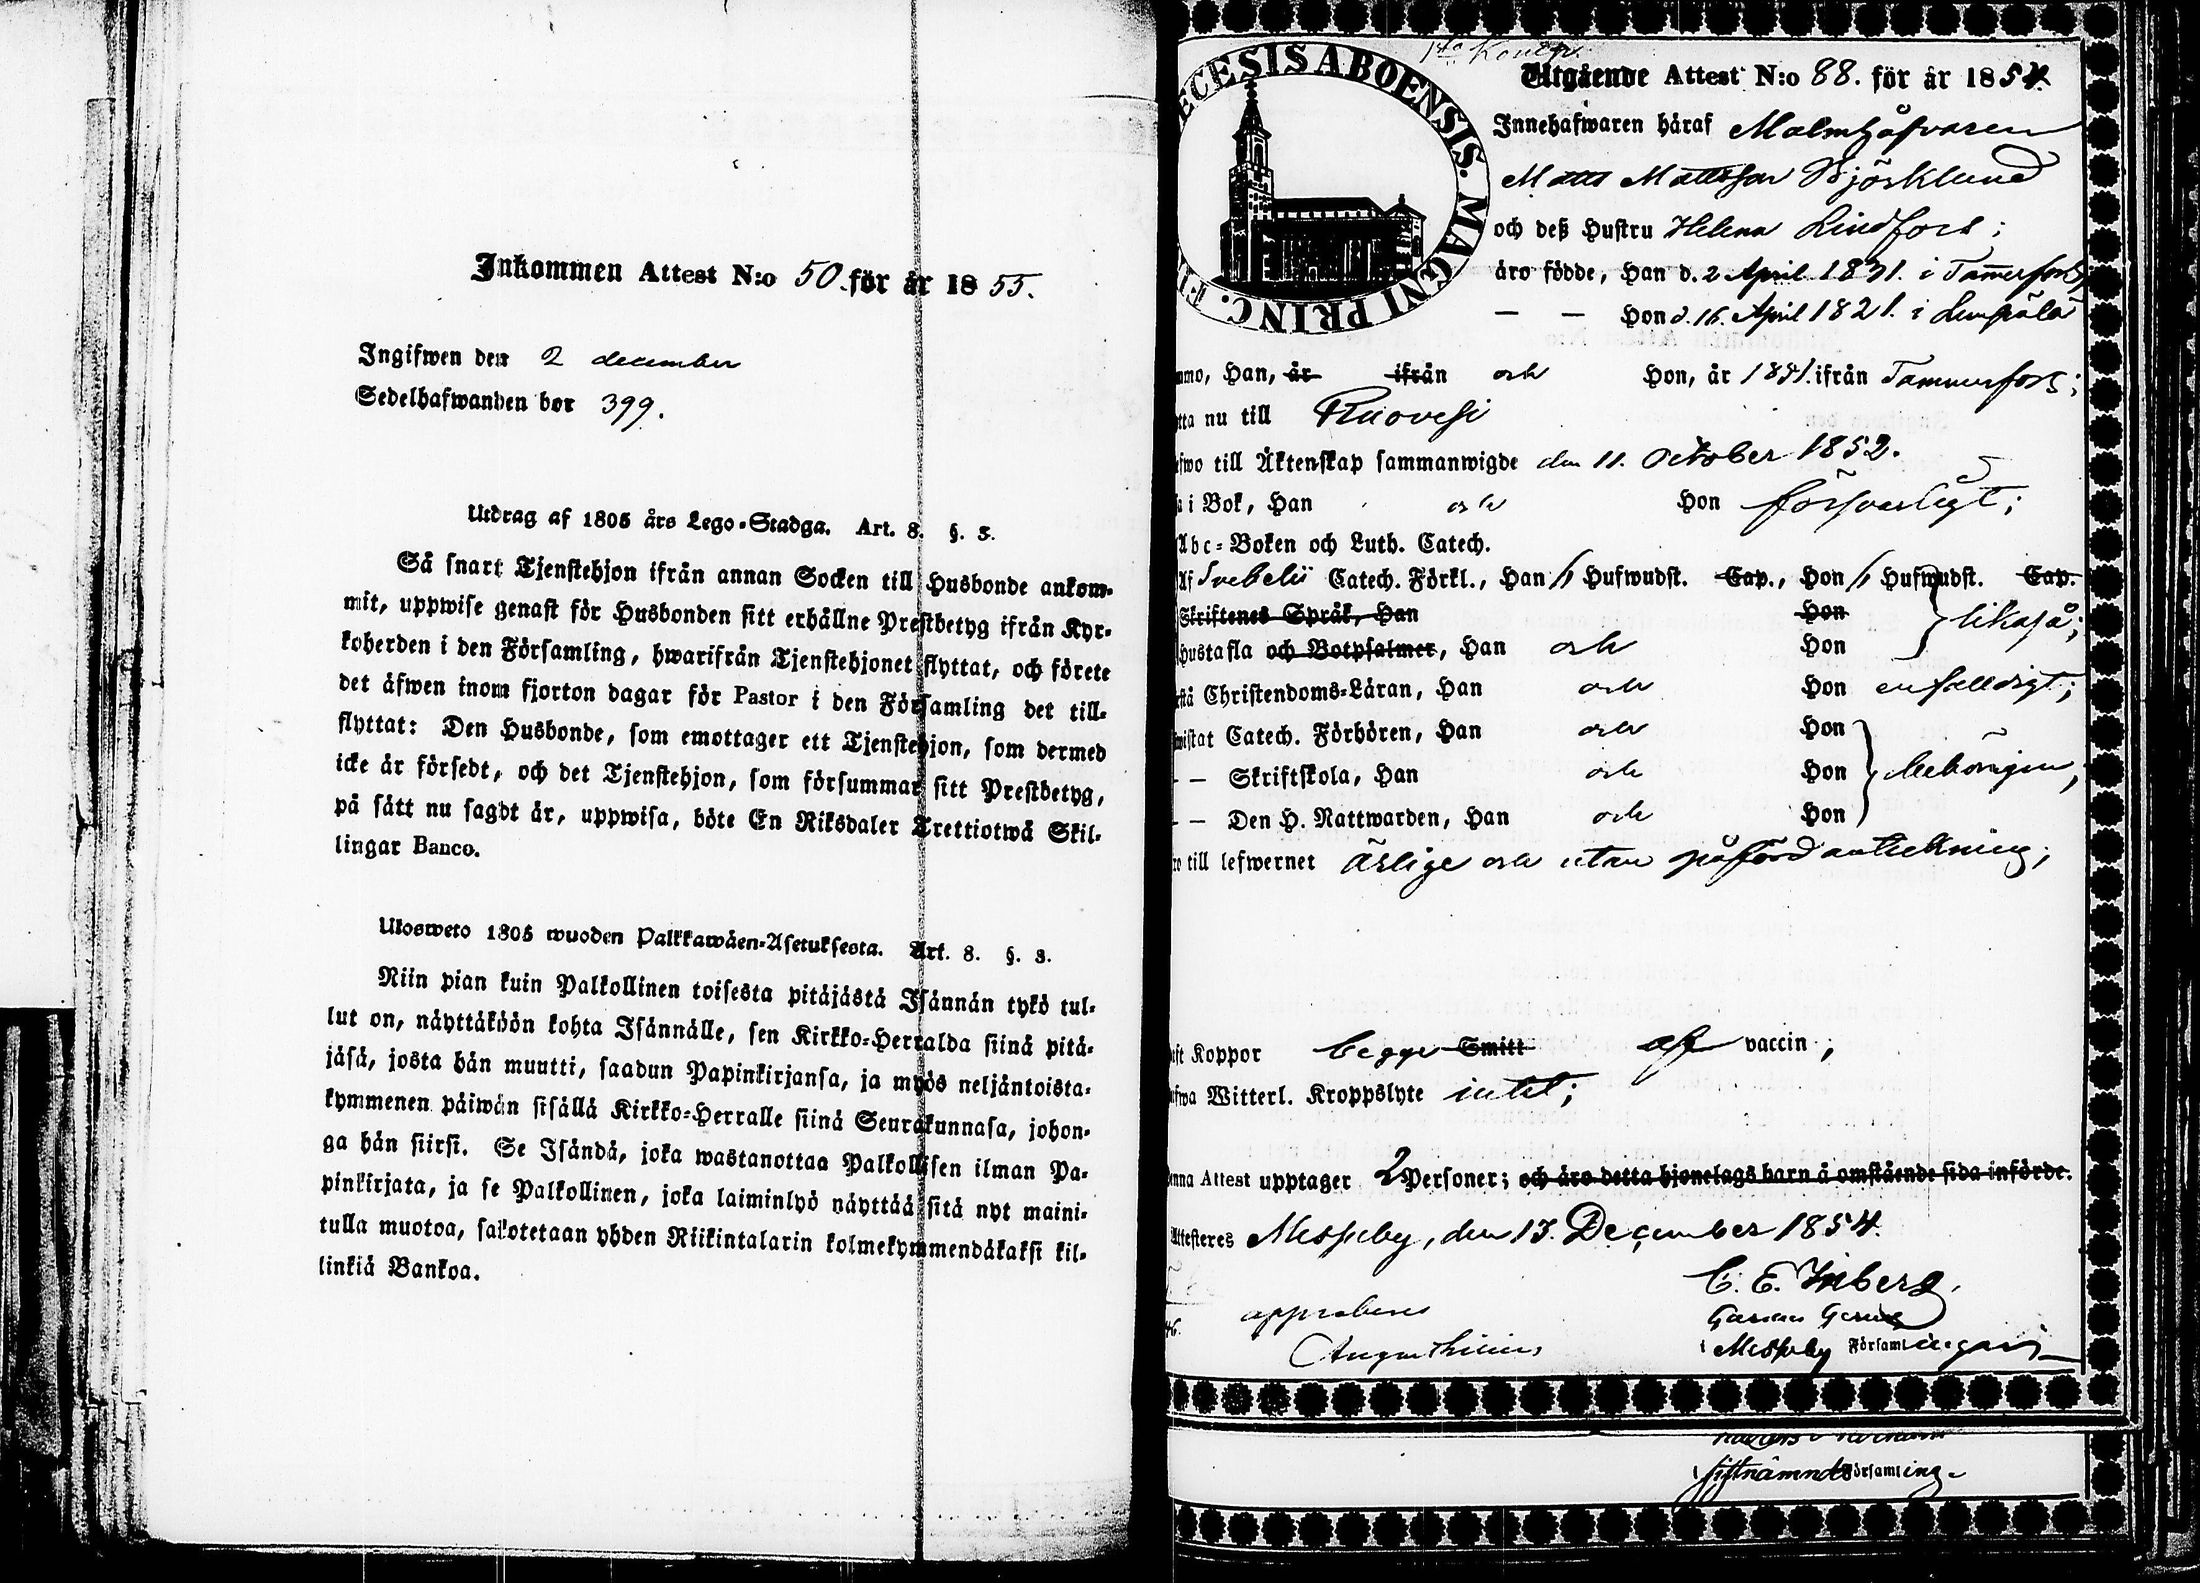 Inkommen Attest N:o 50. för år 1855.
Ingifwen den 2 december
Sedelhafwanden bor 399.
Utdrag af 1805 års Lego-Stadga. Art. 8. §. 3.
Så snart Tjenstehjon ifrån annan Socken till Husbonde ankom-
mit, uppwise genast för Husbonden sitt erhållne Prestbetyg ifrån Kyr-
koherden i den Församling, hwarifrån Tjenstehjonet flyttat, och förete
det äfwen inom fjorton dagar för Pastor i den Församling det till-
flyttat: Den Husbonde, som emottager ett Tjenstehjon, som dermed
icke är försedt, och det Tjenstehjon, som försummar sitt Prestbetyg,
på sätt nu sagdt är, uppwisa, böte En Riksdaler Trettiotwå Skil-
lingar Banco.
Ulosweto 1805 wuoden Palkkawäen-Asetuksesta. Art. 8. §. 3.
Niin pian kuin Palkollinen toisesta pitäjästä Isännän tykö tul-
lut on, näyttäköön kohta Isännälle, sen Kirkko-Herralda siinä pitä-
jäsä, josta hän muutti, saadun Papinkirjansa, ja myös neljäntoista-
kymmenen päiwän sisällä Kirkko-Herralle siinä Seurakunnasa, johon-
ga hän siirsi. Se Isändä, joka wastanottaa Palkollisen ilman Pa-
pinkirjata, ja se Palkollinen, joka laiminlyö näyttää sitä nyt maini-
tulla muotoa, sakotetaan yhden Riikintalarin kolmekymmendäkaksi kil-
linkiä Bankoa.
ECESIS ABOENSIS. MAGNI PRINC. F
Utgående Attest N:o 88. för år 1854.
Innehafwaren häraf
Matts Mattsson Björklund
och deß Hustru Helena Lindfors;
äro födde, Han d. 2 April 1831. i Tammerfors,
— — Hon d. 16. April 1821. i Lempälä
mmo, Han, år ifrån och Hon, år 1851. ifrån Tammerfors;
tta nu till Ruovesi
fwo till Äktenskap sammanwigde den 11. October 1852.
a i Bok, Han och Hon försvarligt;
Abc-Boken och Luth. Catech.
Af Svebelii Catech. Förkl., Han Hufwudst. Cap., Hon Hufwudst. Cap.
Skriftenes Språk, Han Hon likaså;
Hustafla och Botpsalmer, Han och Hon
stå Christendoms-Läran, Han och Hon enfalldigt;
wistat Catech. Förhören, Han och Hon
— — Skriftskola, Han och Hon behörigen;
— — Den H. Nattwarden, Han och Hon
ro till lefwernet ärlige och utan påförd anteckning;
aft Koppor begge Smitt af vaccin;
afwa Witterl. Kroppslyte intet;
enna Attest upptager 2 Personer; och äro detta hjonelags barn å omstående sida införde.
Attesteres Messuby, den 13. December 1854.
C. E. Inberg.
approberas
i Messuby Församling
Augusthinus
sistnämnde Församling.